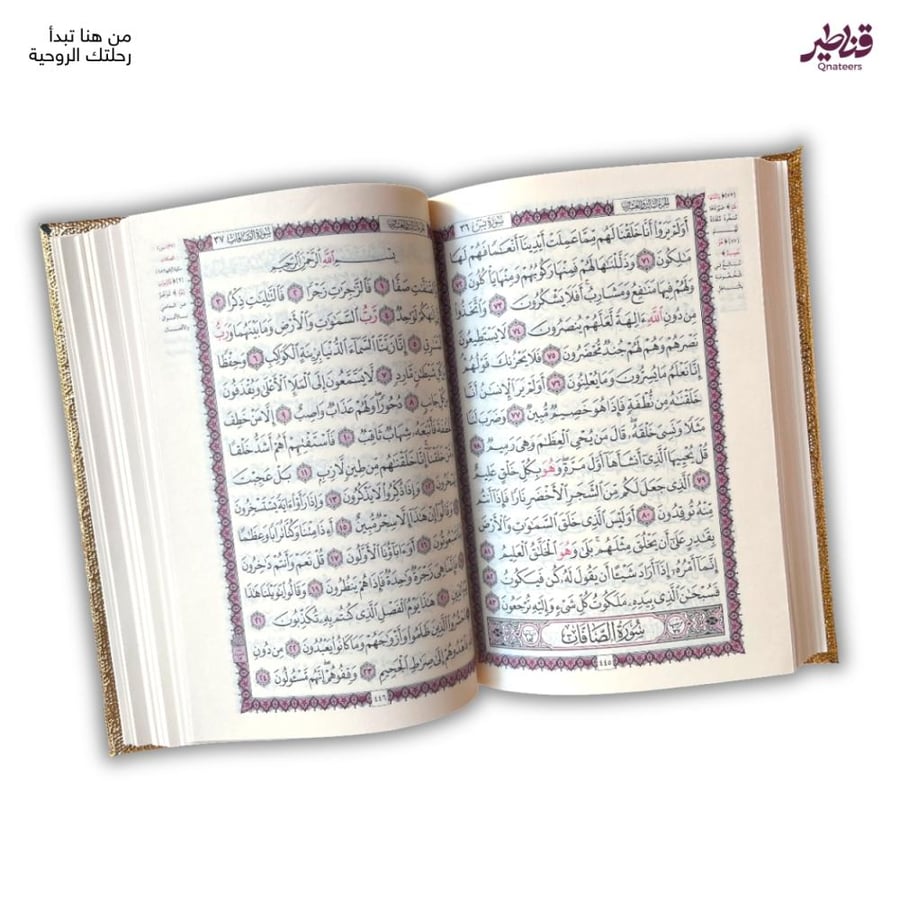 من هنا تبدأ
رحلتك الروحية
قناطير
Qnateers
سُورَةُ يسٓ ٣٦
أَوَلَمْ يَرَوْا۟ أَنَّا خَلَقْنَا لَهُم مِّمَّا عَمِلَتْ أَيْدِينَآ أَنْعَـٰمًا فَهُمْ لَهَا
مَـٰلِكُونَ ٧١ وَذَلَّلْنَـٰهَا لَهُمْ فَمِنْهَا رَكُوبُهُمْ وَمِنْهَا يَأْكُلُونَ ٧٢
وَلَهُمْ فِيهَا مَنَـٰفِعُ وَمَشَارِبُ ۖ أَفَلَا يَشْكُرُونَ ٧٣ وَٱتَّخَذُوا۟
مِن دُونِ ٱللَّهِ ءَالِهَةً لَّعَلَّهُمْ يُنصَرُونَ ٧٤ لَا يَسْتَطِيعُونَ
نَصْرَهُمْ وَهُمْ لَهُمْ جُندٌ مُّحْضَرُونَ ٧٥ فَلَا يَحْزُنكَ قَوْلُهُمْ ۘ
إِنَّا نَعْلَمُ مَا يُسِرُّونَ وَمَا يُعْلِنُونَ ٧٦ أَوَلَمْ يَرَ ٱلْإِنسَـٰنُ أَنَّا
خَلَقْنَـٰهُ مِن نُّطْفَةٍ فَإِذَا هُوَ خَصِيمٌ مُّبِينٌ ٧٧ وَضَرَبَ لَنَا
مَثَلًا وَنَسِىَ خَلْقَهُۥ ۖ قَالَ مَن يُحْىِ ٱلْعِظَـٰمَ وَهِىَ رَمِيمٌ ٧٨
قُلْ يُحْيِيهَا ٱلَّذِىٓ أَنشَأَهَآ أَوَّلَ مَرَّةٍ ۖ وَهُوَ بِكُلِّ خَلْقٍ عَلِيمٌ
٧٩ ٱلَّذِى جَعَلَ لَكُم مِّنَ ٱلشَّجَرِ ٱلْأَخْضَرِ نَارًا فَإِذَآ أَنتُم
مِّنْهُ تُوقِدُونَ ٨٠ أَوَلَيْسَ ٱلَّذِى خَلَقَ ٱلسَّمَـٰوَٰتِ وَٱلْأَرْضَ
بِقَـٰدِرٍ عَلَىٰٓ أَن يَخْلُقَ مِثْلَهُم ۚ بَلَىٰ وَهُوَ ٱلْخَلَّـٰقُ ٱلْعَلِيمُ ٨١
إِنَّمَآ أَمْرُهُۥٓ إِذَآ أَرَادَ شَيْـًٔا أَن يَقُولَ لَهُۥ كُن فَيَكُونُ ٨٢
فَسُبْحَـٰنَ ٱلَّذِى بِيَدِهِۦ مَلَكُوتُ كُلِّ شَىْءٍ وَإِلَيْهِ تُرْجَعُونَ ٨٣
سُورَةُ الصَّافَّاتِ
٤٤٥
سُورَةُ الصَّافَّاتِ ٣٧
بِسْمِ ٱللَّهِ ٱلرَّحْمَـٰنِ ٱلرَّحِيمِ
صَفًّا ١ فَٱلزَّٰجِرَٰتِ زَجْرًا ٢ فَٱلتَّـٰلِيَـٰتِ ذِكْرًا ٣
إِلَـٰهَكُمْ لَوَٰحِدٌ ٤ رَّبُّ ٱلسَّمَـٰوَٰتِ وَٱلْأَرْضِ وَمَا بَيْنَهُمَا وَرَبُّ
٥ إِنَّا زَيَّنَّا ٱلسَّمَآءَ ٱلدُّنْيَا بِزِينَةٍ ٱلْكَوَاكِبِ ٦ وَحِفْظًا
شَيْطَـٰنٍ مَّارِدٍ ٧ لَّا يَسَّمَّعُونَ إِلَى ٱلْمَلَإِ ٱلْأَعْلَىٰ وَيُقْذَفُونَ
جَانِبٍ ٨ دُحُورًا ۖ وَلَهُمْ عَذَابٌ وَاصِبٌ ٩ إِلَّا مَنْ خَطِفَ
فَأَتْبَعَهُۥ شِهَابٌ ثَاقِبٌ ١٠ فَٱسْتَفْتِهِمْ أَهُمْ أَشَدُّ خَلْقًا
خَلَقْنَآ ۚ إِنَّا خَلَقْنَـٰهُم مِّن طِينٍ لَّازِبٍۭ ١١ بَلْ عَجِبْتَ
١٢ وَإِذَا ذُكِّرُوا۟ لَا يَذْكُرُونَ ١٣ وَإِذَا رَأَوْا۟ ءَايَةً يَسْتَسْخِرُونَ
١٤ وَقَالُوٓا۟ إِنْ هَـٰذَآ إِلَّا سِحْرٌ مُّبِينٌ ١٥ أَءِذَا مِتْنَا وَكُنَّا تُرَابًا وَعِظَـٰمًا
لَمَبْعُوثُونَ ١٦ أَوَءَابَآؤُنَا ٱلْأَوَّلُونَ ١٧ قُلْ نَعَمْ وَأَنتُمْ دَٰخِرُونَ
هِىَ زَجْرَةٌ وَٰحِدَةٌ فَإِذَا هُمْ يَنظُرُونَ ١٩ وَقَالُوا۟ يَـٰوَيْلَنَا هَـٰذَا
٢٠ هَـٰذَا يَوْمُ ٱلْفَصْلِ ٱلَّذِى كُنتُم بِهِۦ تُكَذِّبُونَ ٢١
ٱلَّذِينَ ظَلَمُوا۟ وَأَزْوَٰجَهُمْ وَمَا كَانُوا۟ يَعْبُدُونَ ٢٢ مِن دُونِ
فَٱهْدُوهُمْ إِلَىٰ صِرَٰطِ ٱلْجَحِيمِ ٢٣ وَقِفُوهُمْ ۖ إِنَّهُم مَّسْـُٔولُونَ ٢٤
٤٤٦